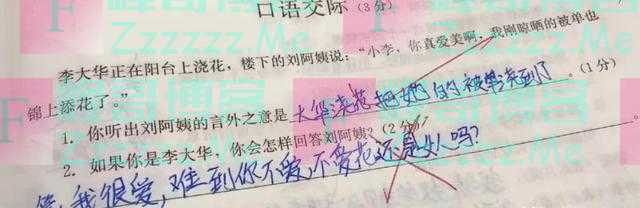 口语交际（3分）
李大华正在阳台上浇花，楼下的刘阿姨说：“小李，你真爱美啊，我刚晾晒的被单也
锦上添花了。”
1. 你听出刘阿姨的言外之意是 大华浇花把她的被单浇到了 。（1分）
2. 如果你是李大华，你会怎样回答刘阿姨？（2分）
我很爱，难到你不爱，不爱花还是女人吗？
Zzzzzz.Me
Zzzzzz.Me